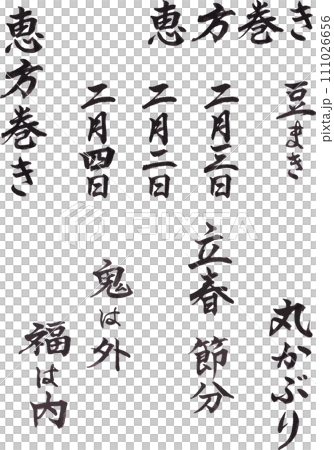 恵方巻き
豆まき
二月三日
二月二日
二月四日
恵方巻き
丸かぶり
立春
節分
鬼は外
福は内
PIXTA
pixta.jp - 111026656